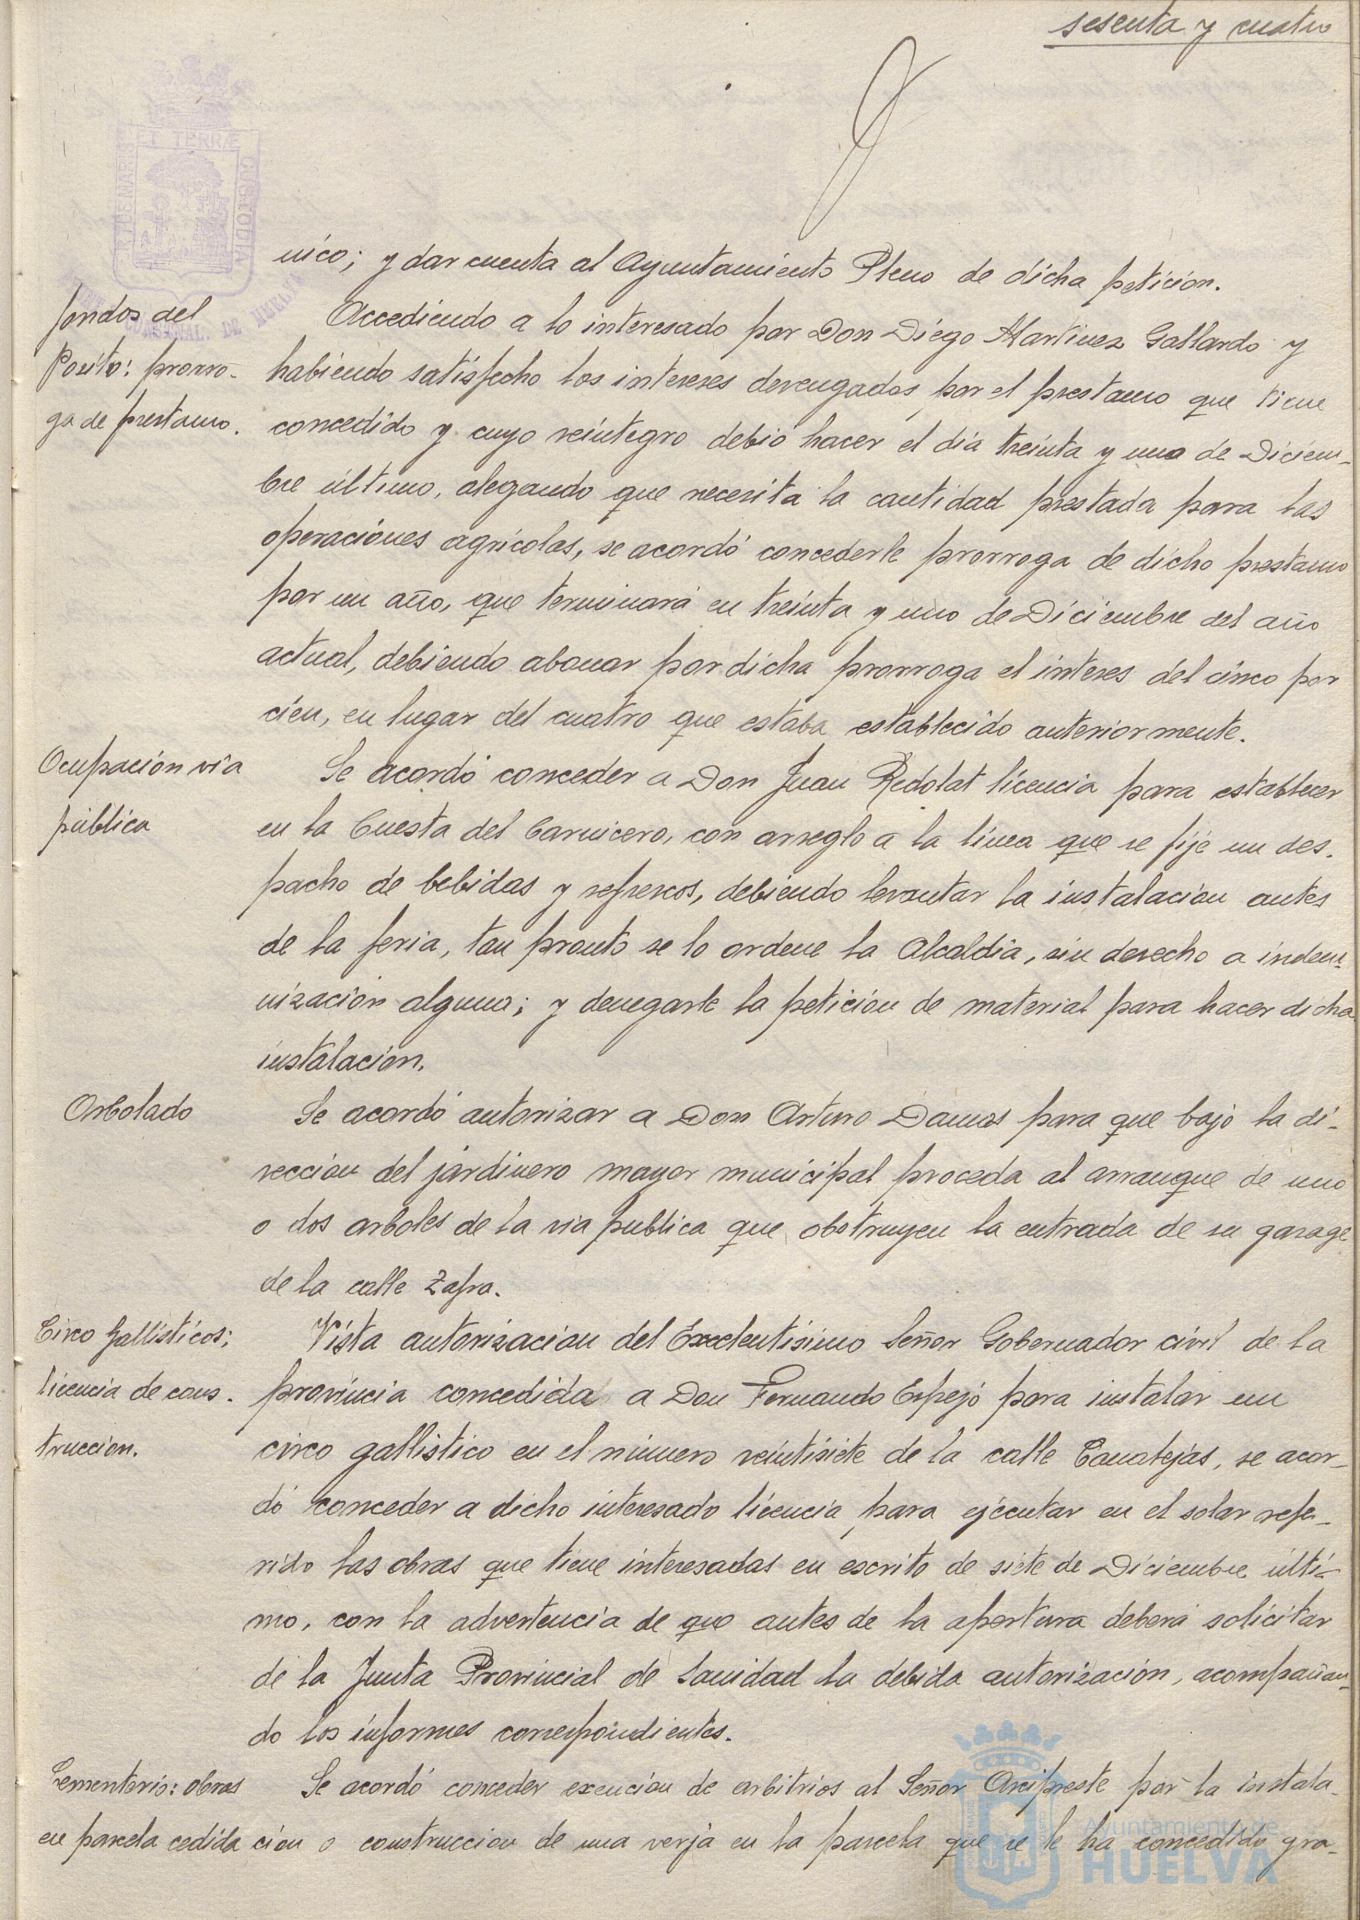 sesenta y cuatro
PORTUS MARIS ET TERRÆ CUSTODIA
CONSTNAL. DE HUELVA
nico; y dar cuenta al Ayuntamiento Pleno de dicha petición.
fondos del
Posito: prorro-
ga de prestamo.
Accediendo a lo interesado por Don Diego Martinez Gallardo y
habiendo satisfecho los intereses devengados por el prestamo que tiene
concedido y cuyo reintegro debió hacer el día treinta y uno de Diciem-
bre último, alegando que necesita la cantidad prestada para las
operaciónes agrícolas, se acordó concederle prorroga de dicho prestamo
por un año, que terminará en treinta y uno de Diciembre del año
actual, debiendo abonar por dicha prorroga el interes del cinco por
cien, en lugar del cuatro que estaba establecido anteriormente.
Ocupación via
pública
Se acordó conceder a Don Juan Redolat licencia para establecer
en la Cuesta del Carnicero, con arreglo a la línea que se fije un des-
pacho de bebidas y refrescos, debiendo levantar la instalacion antes
de la feria, tan pronto se lo ordene la Alcaldia, sin derecho a indem-
nización alguna; y denegarle la petición de material para hacer dicha
instalación.
Arbolado
Se acordó autorizar a Don Arturo Damas para que bajo la di-
reccion del jardinero mayor municipal proceda al arranque de uno
o dos arboles de la via publica que obstruyen la entrada de su garage
de la calle Zafra.
Circo Gallisticos;
licencia de cons-
truccion.
Vista autorizacion del Excelentísimo Señor Gobernador civil de la
provincia concedida a Don Fernando Espejo para instalar un
circo gallistico en el número veintisiete de la calle Canalejas, se acor-
dó conceder a dicho interesado licencia para ejecutar en el solar refe-
rido las obras que tiene interesadas en escrito de siete de Diciembre últi-
mo, con la advertencia de que antes de la apertura deberá solicitar
de la Junta Provincial de Sanidad la debida autorización, acompañan-
do los informes correspondientes.
Cementerio: obras
en parcela cedida
Se acordó conceder exencion de arbitrios al Señor Arcipreste por la instala-
cion o construccion de una verja en la parcela que se le ha concedido gra-
Ayuntamiento de
HUELVA